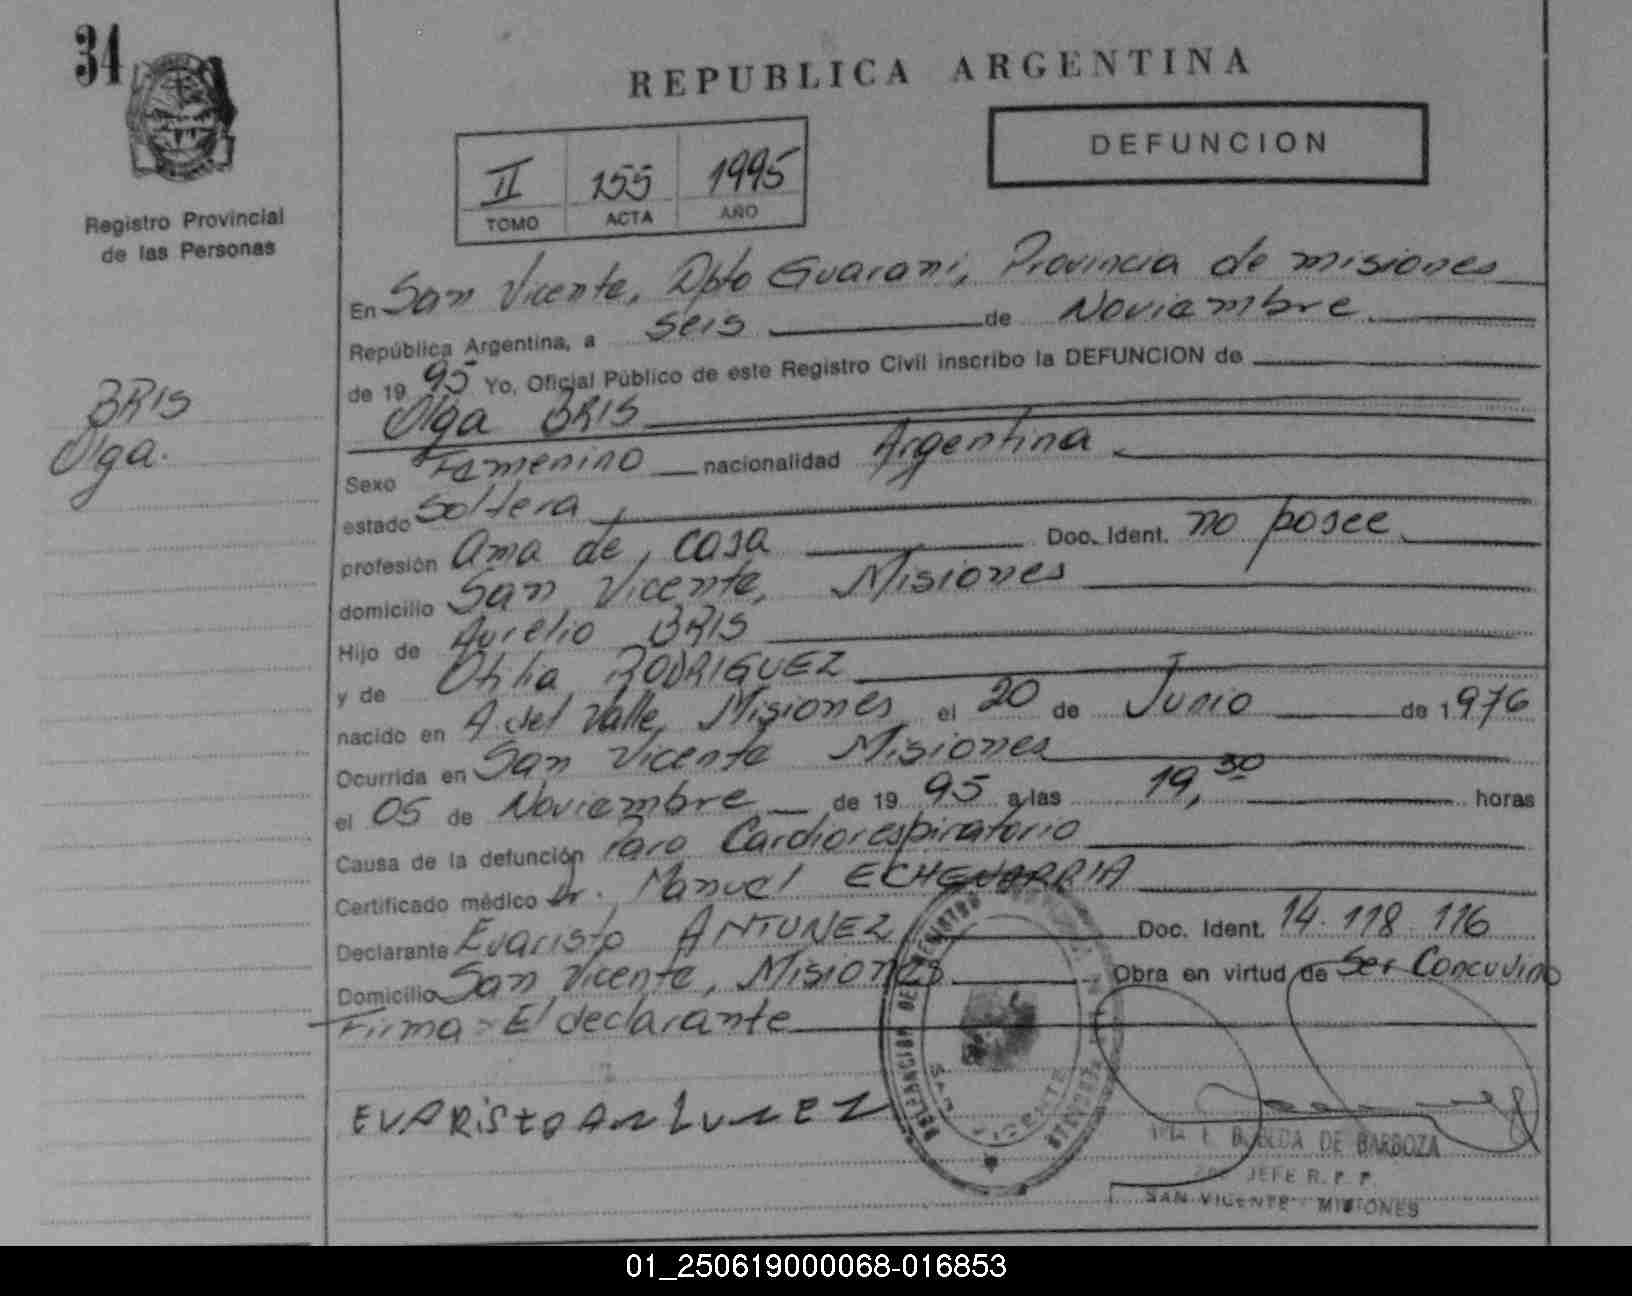 34
REPUBLICA ARGENTINA
DEFUNCION
II 155 1995
TOMO ACTA AÑO
Registro Provincial
de las Personas
BRIS
Olga.
En San Vicente, Dpto Guarani, Provincia de misiones
República Argentina, a seis de Noviembre
de 19 95 Yo, Oficial Público de este Registro Civil inscribo la DEFUNCION de
Olga BRIS
Sexo Femenino nacionalidad Argentina
estado Soltera
profesión Ama de casa Doc. Ident. no posee
domicilio San Vicente, Misiones
Hijo de Aurelio BRIS
y de Otilia RODRIGUEZ
nacido en A. del Valle, Misiones el 20 de Junio de 1976
Ocurrida en San Vicente Misiones
el 05 de Noviembre de 19 95 a las 19,30 horas
Causa de la defunción Paro Cardiorespiratorio
Certificado médico Dr. Manuel ECHEVARRIA
Declarante Evaristo ANTUNEZ Doc. Ident. 14.118.116
Domicilio San Vicente, Misiones Obra en virtud de Ser Concuvino
Firma = El declarante
EVARISTO ANTUNEZ
DE BARBOZA
JEFE R. P. P.
SAN VICENTE - MISIONES
SAN VICENTE
01_250619000068-016853